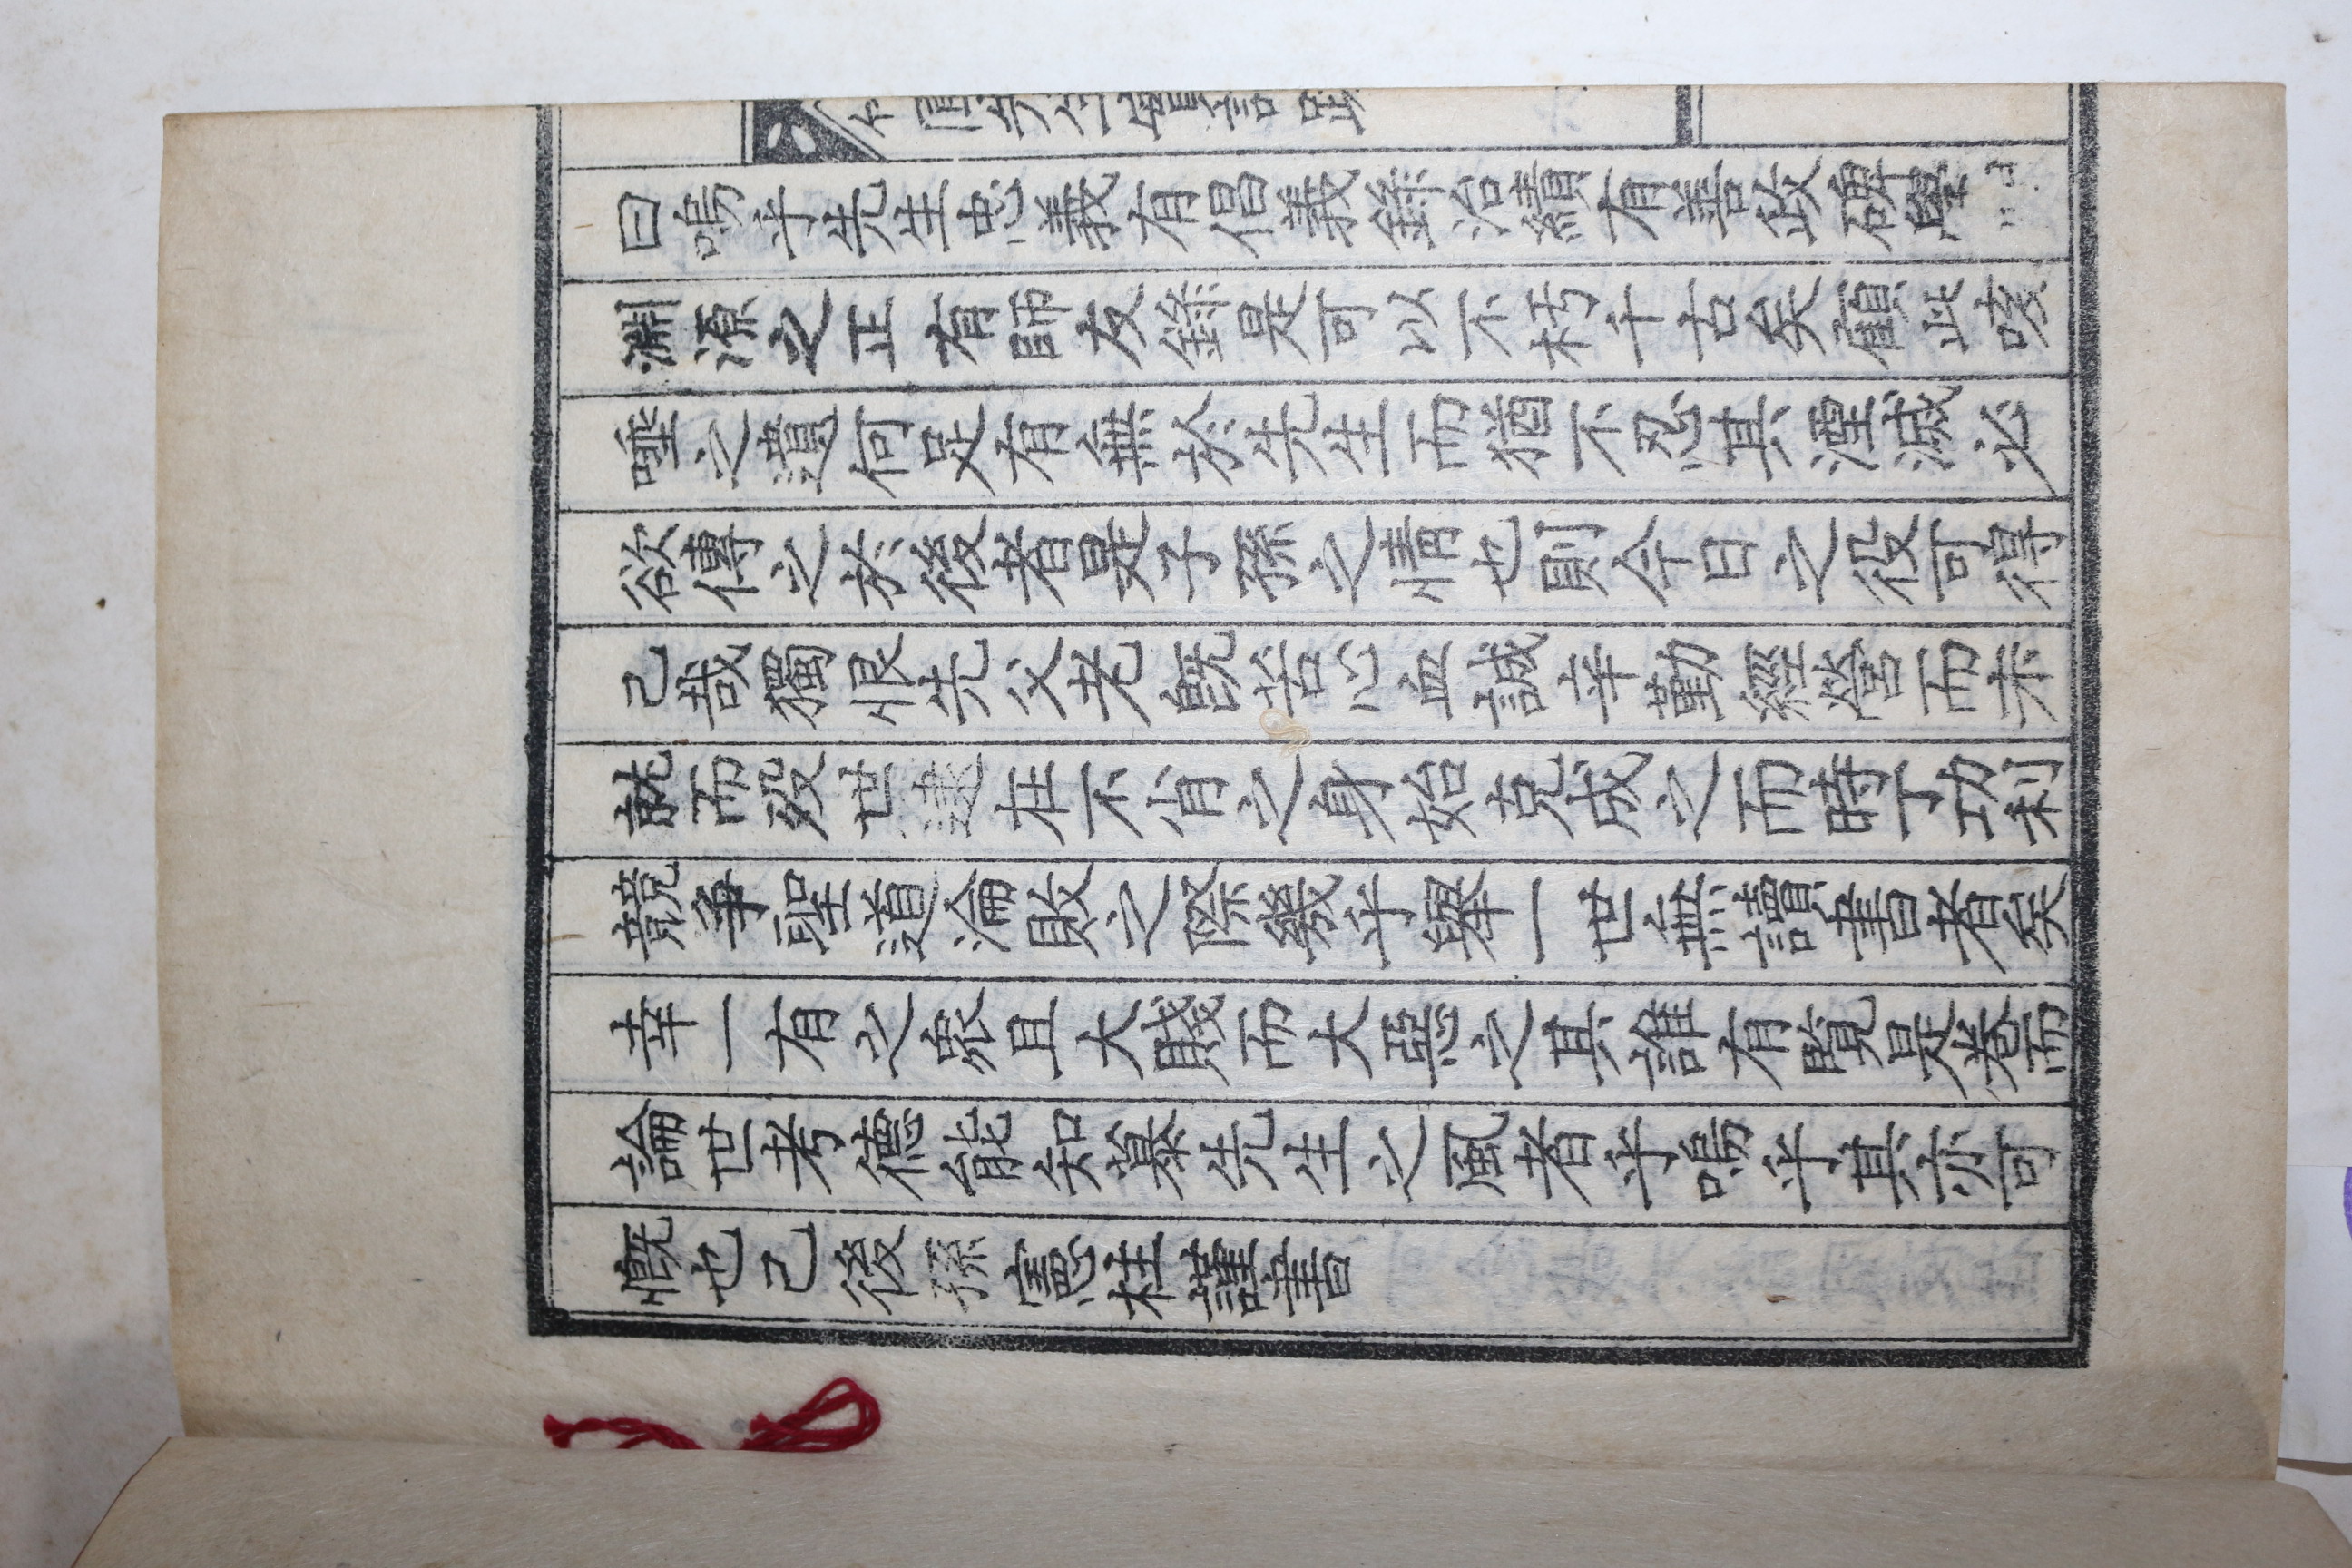 先生實記跋
曰嗚乎先生忠義有倡義錄治績有善政碑學
淵源之正有師友錄是可以不朽千古矣顧此咳
唾之遺何足有無於先生而猶不忍其湮滅必
欲傳之於後者是子孫之情也則今日之役可得
己哉獨恨先父老旣苦心血誠辛勤經營而未
就而歿世逮在不肖之身始克成之而時丁功利
競爭聖道淪敗之際幾乎舉一世無讀書者矣
幸一有之衆且大賤而大惡之其誰有覽是卷而
論世考德能知慕先生之風者乎嗚乎其亦可
慨也己後孫憲柱謹書